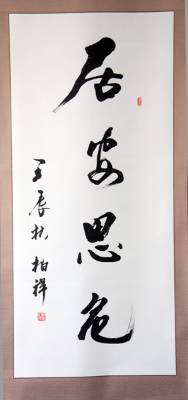 居安思危
壬辰秋 柏祥